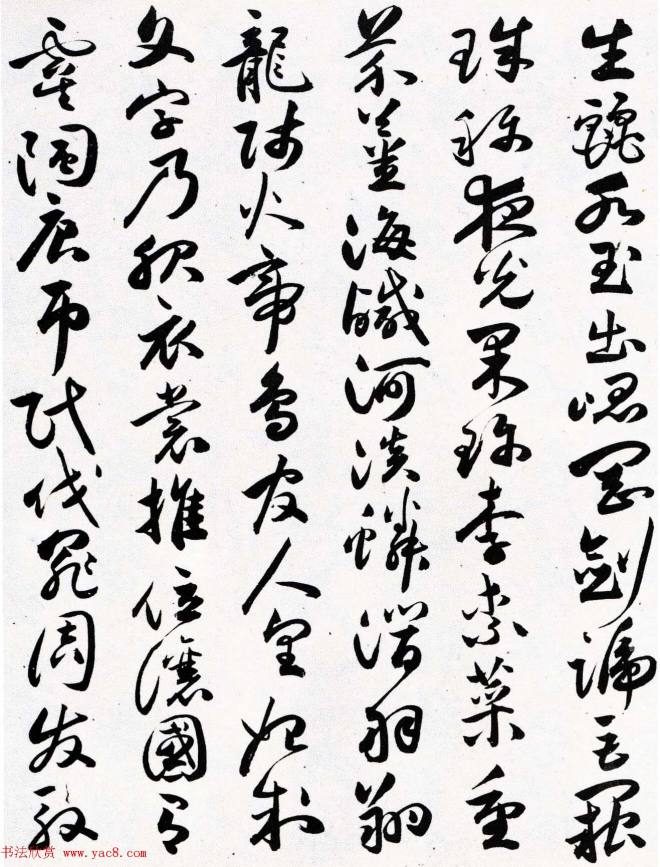 生麗水玉出崑岡劍號巨闕
珠稱夜光果珍李柰菜重
芥薑海鹹河淡鱗潛羽翔
龍師火帝鳥官人皇始制
文字乃服衣裳推位讓國有
虞陶唐弔民伐罪周發殷
书法欣赏 www.yac8.com